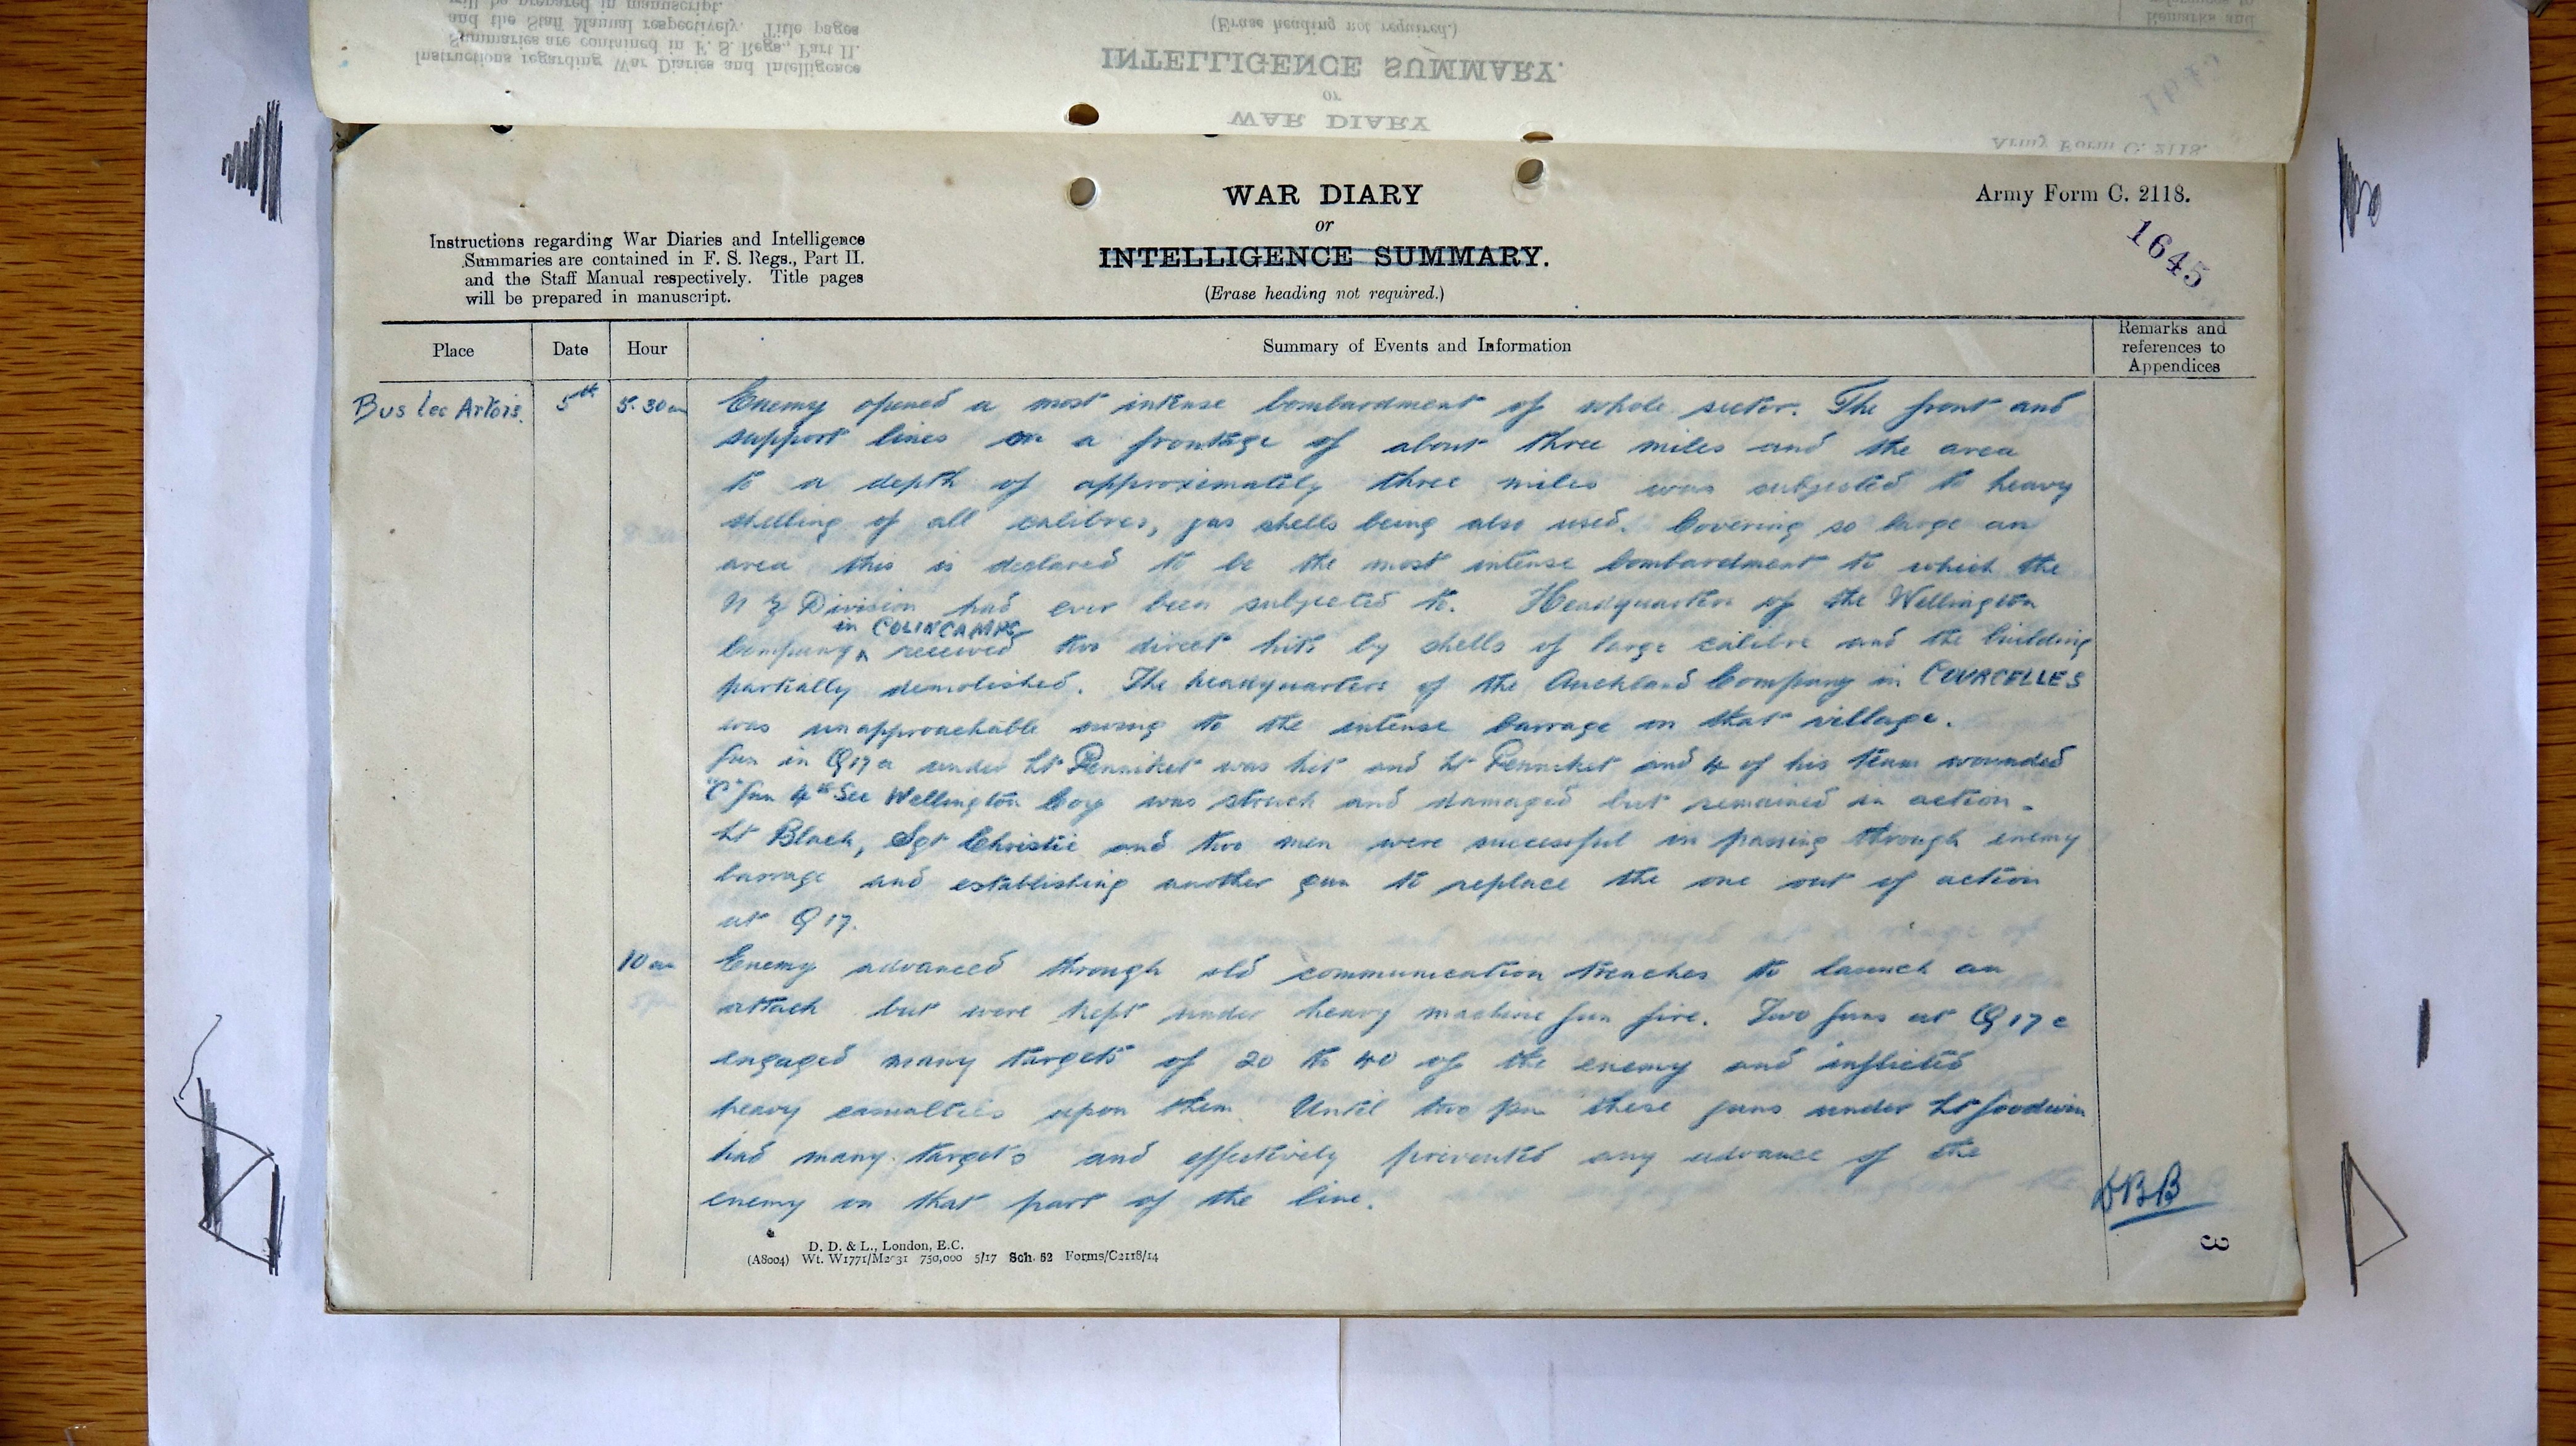 will be prepared in manuscript.
and the Staff Manual respectively. Title pages
Summaries are contained in F. S. Regs., Part II.
Instructions regarding War Diaries and Intelligence
(Erase heading not required.)
INTELLIGENCE SUMMARY.
or
WAR DIARY
Remarks and
Army Form C. 2118.
WAR DIARY
or
INTELLIGENCE SUMMARY.
(Erase heading not required.)
Army Form C. 2118.
1645
Instructions regarding War Diaries and Intelligence
Summaries are contained in F. S. Regs., Part II.
and the Staff Manual respectively. Title pages
will be prepared in manuscript.
Place Date Hour Summary of Events and Information Remarks and references to Appendices
Bus les Artois. 5th 5.30am Enemy opened a most intense bombardment of whole sector. The front and
support lines on a frontage of about three miles and the area
to a depth of approximately three miles was subjected to heavy
shelling of all calibres, gas shells being also used. Covering so large an
area this is declared to be the most intense bombardment to which the
N Z Division had ever been subjected to. Headquarters of the Wellington
in COLINCAMPS
Company received two direct hits by shells of large calibre and the building
partially demolished. The headquarters of the Auckland Company in COURCELLES
was unapproachable owing to the intense barrage on that village.
Gun in Q17a under Lt Penniket was hit and Lt Penniket and 4 of his team wounded
"C" Gun 4th Sec Wellington Coy was struck and damaged but remained in action.
Lt Black, Sgt Christie and two men were successful in passing through enemy
barrage and establishing another gun to replace the one out of action
at Q17.
10 am Enemy advanced through old communication trenches to launch an
attack but were kept under heavy machine gun fire. Two guns at Q17c
engaged many targets of 20 to 40 of the enemy and inflicted
heavy casualties upon them. Until two pm these guns under Lt Goodwin
had many targets and effectively prevented any advance of the
enemy on that part of the line.
DBB
3
D. D. & L., London, E.C.
(A8004) Wt. W1771/M2031 750,000 5/17 Sch. 52 Forms/C2118/14